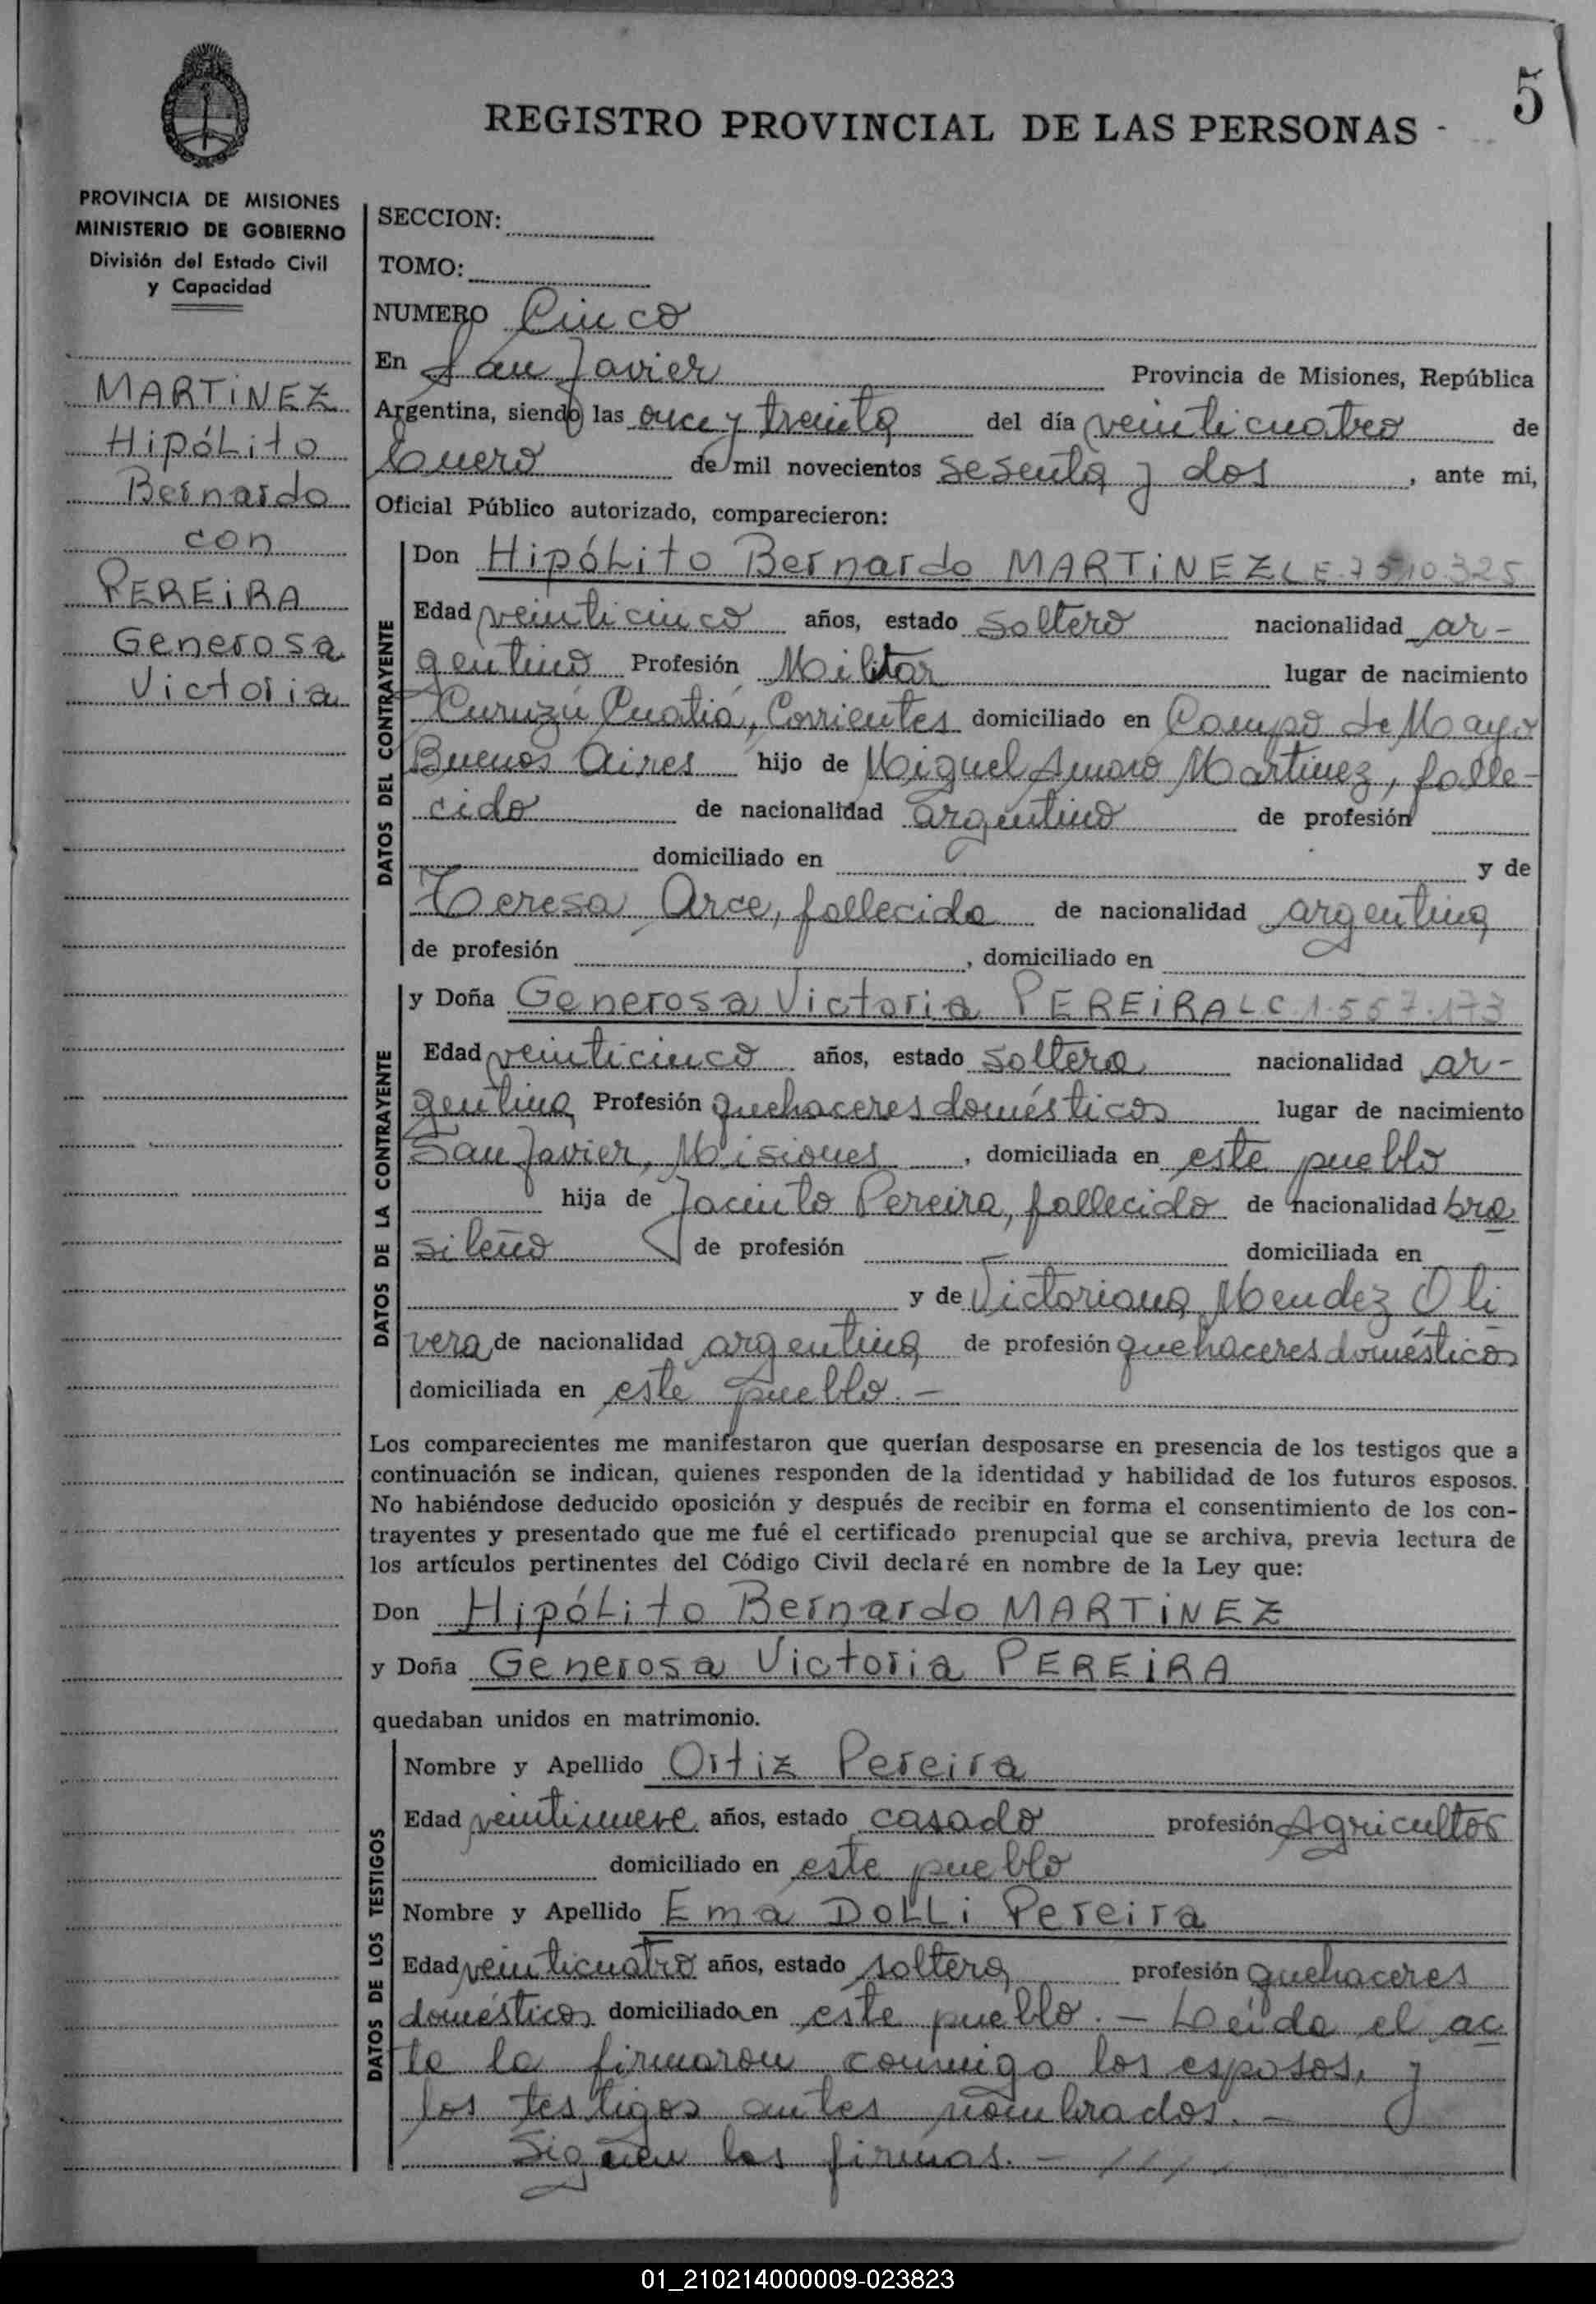 5
REGISTRO PROVINCIAL DE LAS PERSONAS -
PROVINCIA DE MISIONES
MINISTERIO DE GOBIERNO
División del Estado Civil
y Capacidad
MARTINEZ
Hipólito
Bernardo
con
PEREIRA
Generosa
Victoria
SECCION:
TOMO:
NUMERO Cinco
En San Javier Provincia de Misiones, República
Argentina, siendo las once y treinta del día veinticuatro de
Enero de mil novecientos sesenta y dos, ante mi,
Oficial Público autorizado, comparecieron:
DATOS DEL CONTRAYENTE
Don Hipólito Bernardo MARTINEZ L E
Edad veinticinco años, estado soltero nacionalidad ar-
gentino Profesión Militar lugar de nacimiento
Curuzú Cuatiá, Corrientes domiciliado en Campo de Mayo
Buenos Aires hijo de Miguel Amaro Martinez, falle-
cido de nacionalidad argentino de profesión
domiciliado en y de
Teresa Arce, fallecida de nacionalidad argentina
de profesión , domiciliado en
DATOS DE LA CONTRAYENTE
y Doña Generosa Victoria PEREIRA L C 1.557.173
Edad veinticinco años, estado soltera nacionalidad ar-
gentina Profesión quehaceres domésticos lugar de nacimiento
San Javier, Misiones , domiciliada en este pueblo
hija de Jacinto Pereira, fallecido de nacionalidad bra
sileño de profesión domiciliada en
y de Victoriana Mendez Oli
vera de nacionalidad argentina de profesión quehaceres domésticos
domiciliada en este pueblo.-
Los comparecientes me manifestaron que querían desposarse en presencia de los testigos que a
continuación se indican, quienes responden de la identidad y habilidad de los futuros esposos.
No habiéndose deducido oposición y después de recibir en forma el consentimiento de los con-
trayentes y presentado que me fué el certificado prenupcial que se archiva, previa lectura de
los artículos pertinentes del Código Civil declaré en nombre de la Ley que:
Don Hipólito Bernardo MARTINEZ
y Doña Generosa Victoria PEREIRA
quedaban unidos en matrimonio.
DATOS DE LOS TESTIGOS
Nombre y Apellido Ortiz Pereira
Edad veintinueve años, estado casado profesión Agricultor
domiciliado en este pueblo
Nombre y Apellido Ema Dolli Pereira
Edad veinticuatro años, estado soltera profesión quehaceres
domésticos domiciliado en este pueblo.- Leída el ac
ta la firmaron conmigo los esposos, y
los testigos antes nombrados.-
Siguen las firmas.- ///
01_210214000009-023823